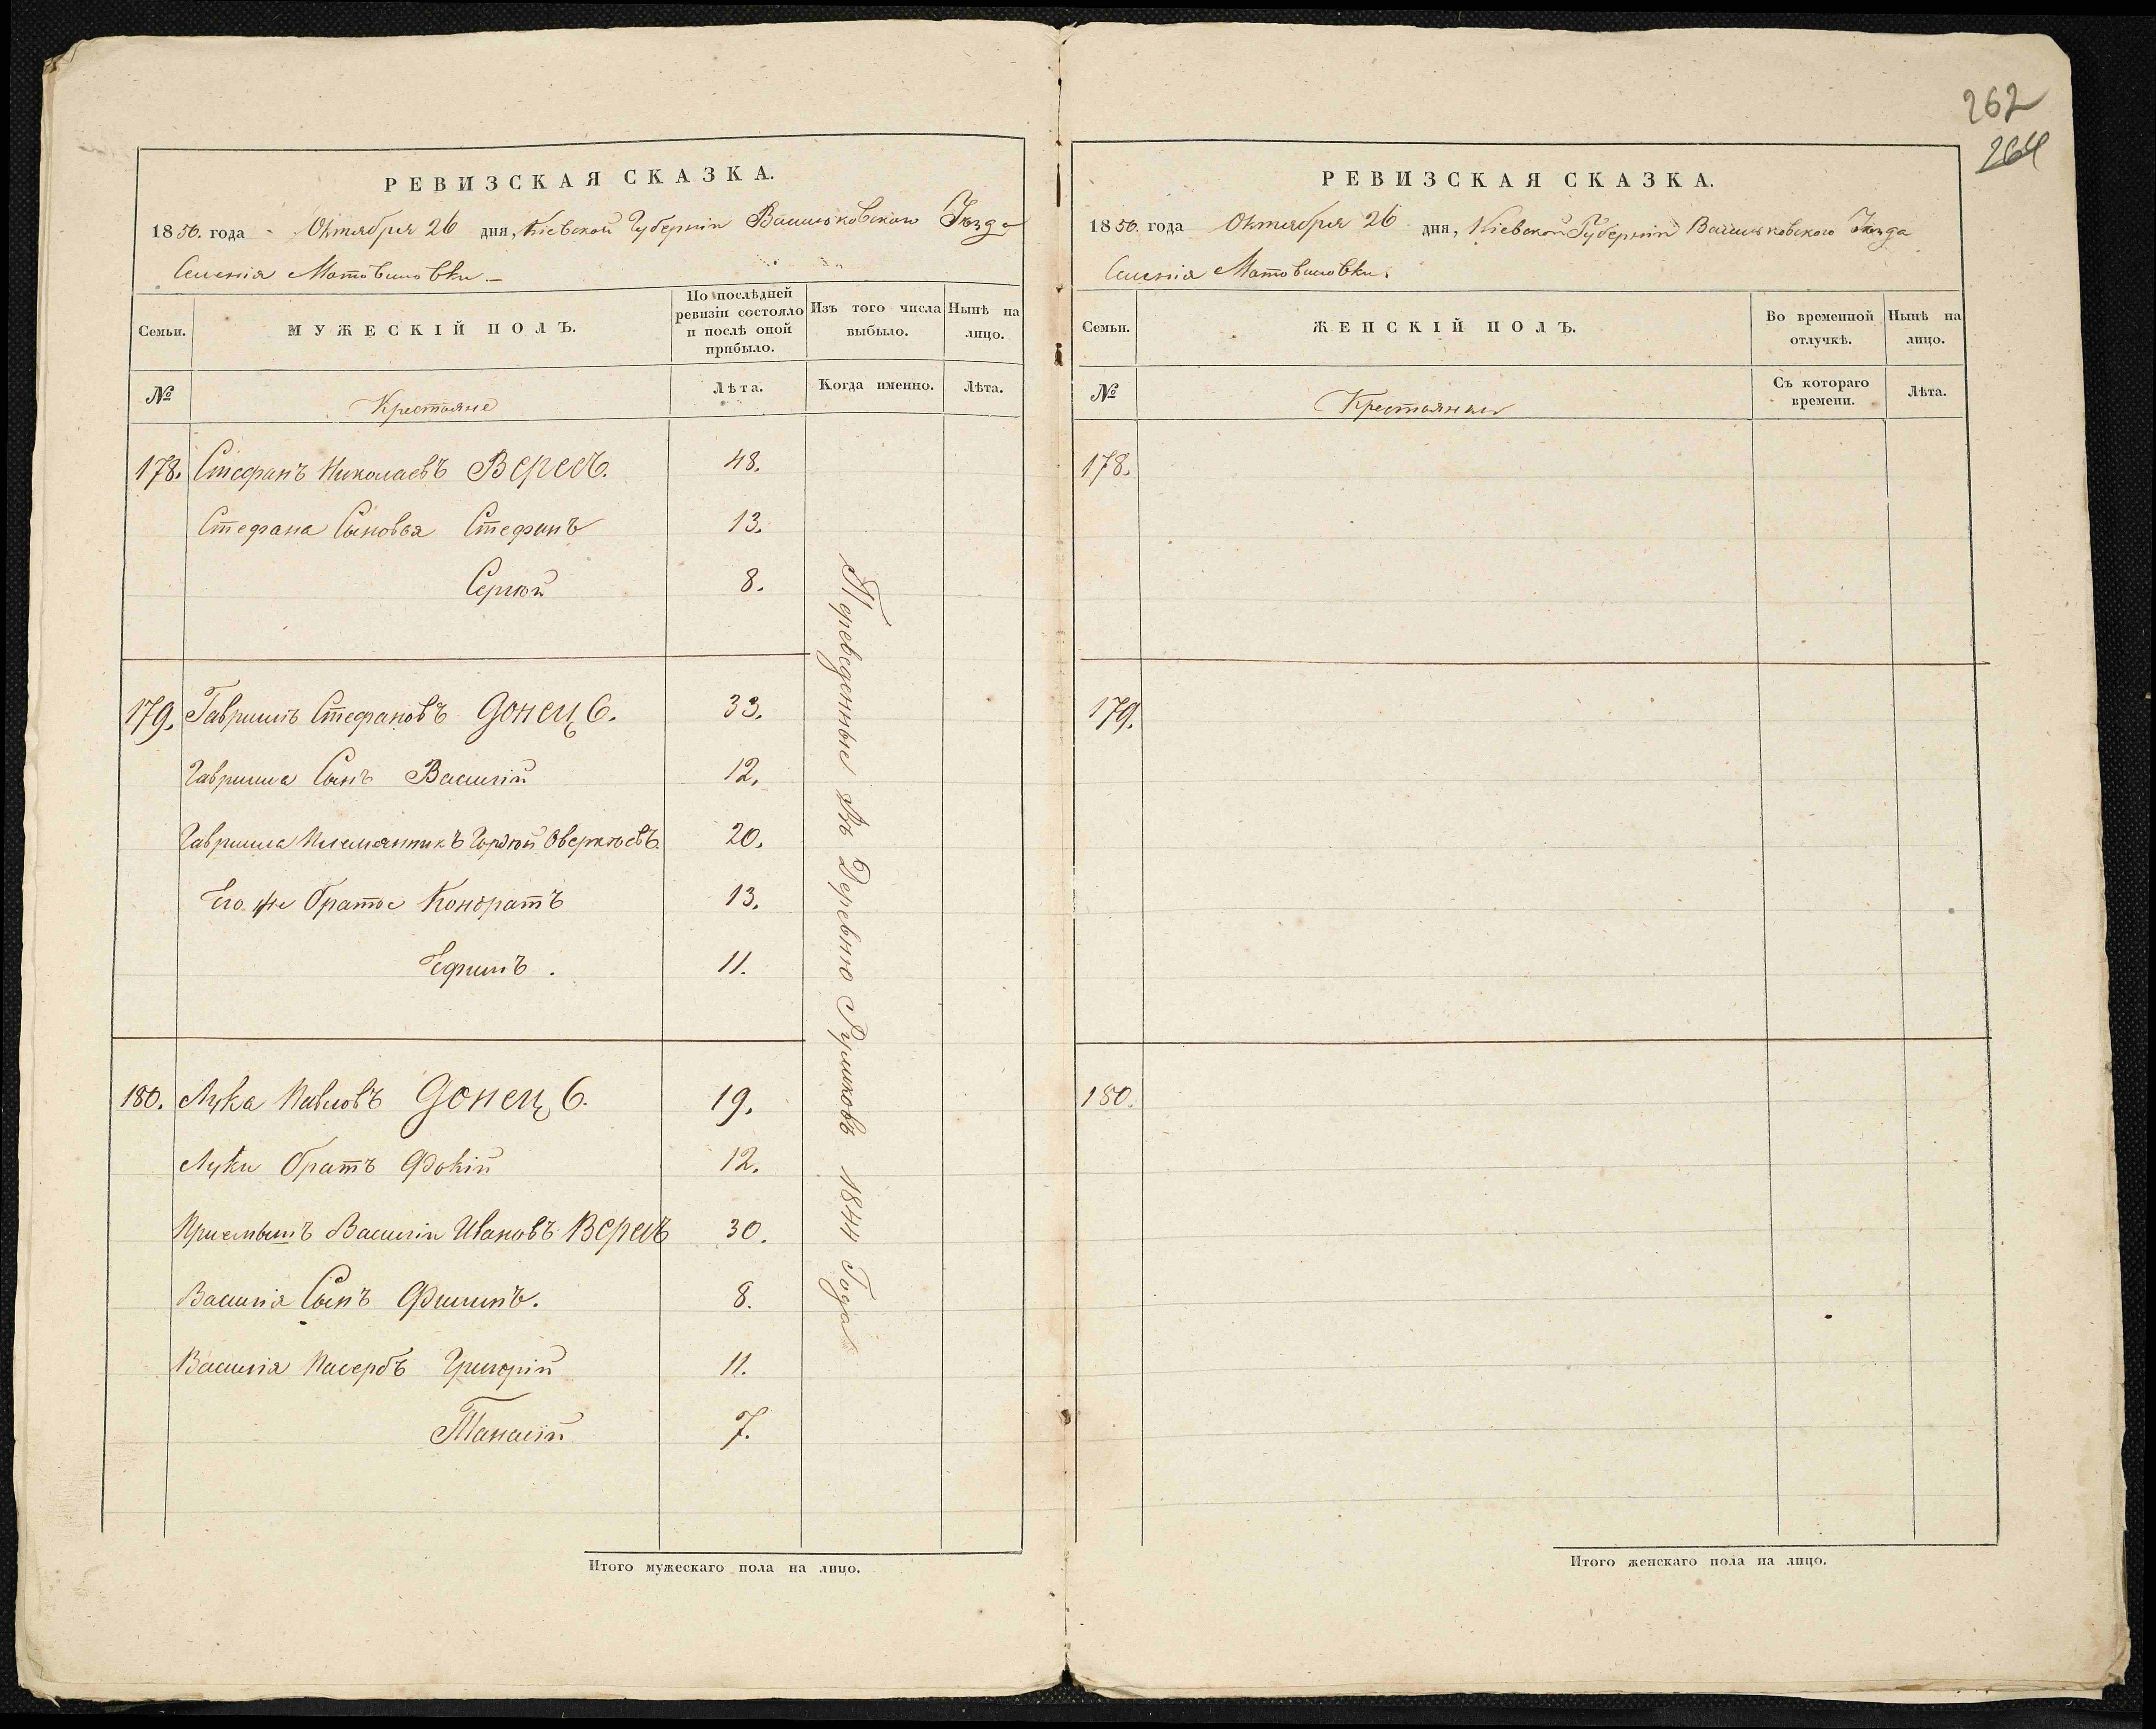 262
264
РЕВИЗСКАЯ СКАЗКА.
1850. года Октября 26 дня, Кіевской Губерніи Васильковскаго Уѣзда
Селенія Мотовиловки.
Семьи.
МУЖЕСКІЙ ПОЛЪ.
По послѣдней ревизіи состояло и послѣ оной прибыло.
Изъ того числа выбыло.
Нынѣ на лицо.
№
Крестьяне
Лѣта.
Когда именно.
Лѣта.
178. Стефанъ Николаевъ Вересъ. 48.
Стефана Сыновья Стефанъ 13.
Сергѣй 8.
179. Гаврыилъ Стефановъ Донецъ. 33.
Гаврыила Сынъ Василій 12.
Гаврыила Племянникъ Гордѣй Оверкѣевъ 20.
Его же братье Кондратъ 13.
Ефимъ. 11.
180. Лука Павловъ Донецъ. 19.
Луки братъ Фокій 12.
Приемышъ Василій Ивановъ Вересъ 30.
Василія Сынъ Филипъ. 8.
Василія Пасербъ Григорій 11.
Танасій 7.
Переведенные въ Деревню 1844 Года
Итого мужескаго пола на лицо.
РЕВИЗСКАЯ СКАЗКА.
1850. года Октября 26 дня, Кіевской Губерніи Васильковскаго Уѣзда
Селенія Мотовиловки.
Семьи.
ЖЕНСКІЙ ПОЛЪ.
Во временной отлучкѣ.
Нынѣ на лицо.
№
Крестьянки
Съ котораго времени.
Лѣта.
178.
179.
180.
Итого женскаго пола на лицо.